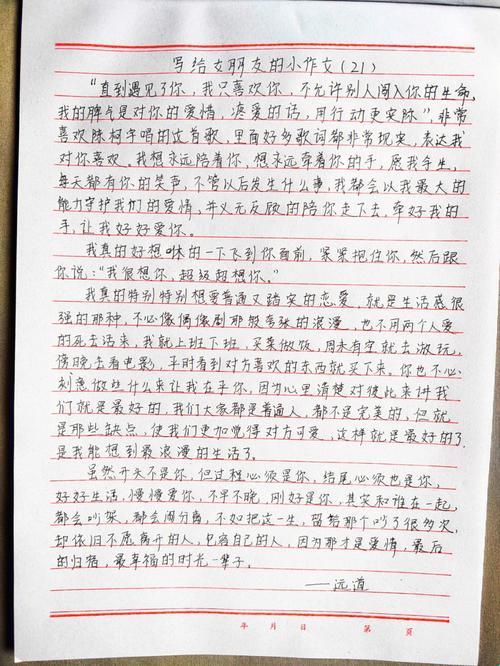 写给女朋友的小作文(21)
"直到遇见了你,我只喜欢你,不允许别人闯入你的生命,
我的脾气是对你的爱情,疼爱的话,用行动更实际",非常
喜欢陈柯宇唱的这首歌,里面好多歌词都非常现实,表达我
对你喜欢,我想永远陪着你,想永远牵着你的手,愿我今生,
每天都有你的笑声,不管以后发生什么事,我都会以我最大的
能力守护我们的爱情,并义无反顾的陪你走下去,牵好我的
手,让我好好爱你。
我真的好想咻的一下飞到你面前,紧紧抱住你,然后跟
你说:"我很想你,超级超想你。"
我真的特别特别想要普通又踏实的恋爱,就是生活感很
强的那种,不必像偶像剧那般夸张的浪漫,也不用两个人爱
的死去活来,我就上班下班,买菜做饭,周末有空就去游玩,
傍晚去看电影,平时看到对方喜欢的东西就买下来,你也不必
刻意做些什么来让我在乎你,因为心里清楚对彼此来讲我
们就是最好的,我们大家都是普通人,都不是完美的,但就
是那些缺点,使我们更加觉得对方可爱,这样就是最好的了,
是我能想到最浪漫的生活了。
虽然开头不是你,但过程必须是你,结尾必须也是你,
好好生活,慢慢爱你,不早不晚,刚好是你,其实和谁在一起,
都会吵架,都会闹分离,不如把这一生,留给那个吵了很多次,
却依旧不愿离开的人,包容自己的人,因为那才是爱情,最后
的归宿,最幸福的时光一辈子。
——远道
年 月 日 第 页